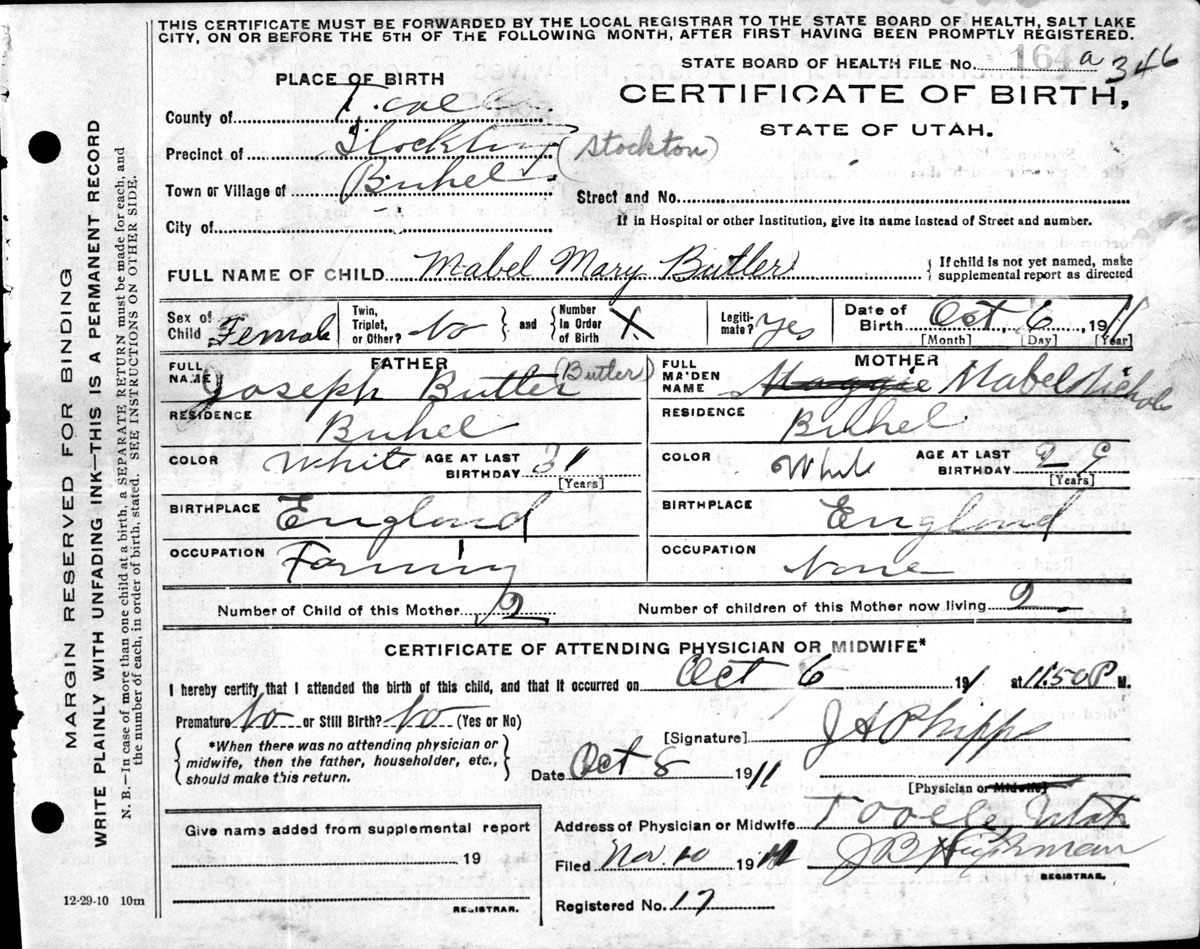 THIS CERTIFICATE MUST BE FORWARDED BY THE LOCAL REGISTRAR TO THE STATE BOARD OF HEALTH, SALT LAKE
CITY, ON OR BEFORE THE 5TH OF THE FOLLOWING MONTH, AFTER FIRST HAVING BEEN PROMPTLY REGISTERED.
STATE BOARD OF HEALTH FILE No. 164 a 346
PLACE OF BIRTH
CERTIFICATE OF BIRTH,
STATE OF UTAH.
County of
Precinct of Stockton (Stockton)
Town or Village of Buhel
Street and No.
If in Hospital or other Institution, give its name instead of Street and number.
City of
FULL NAME OF CHILD Mabel Mary Butler { If child is not yet named, make
supplemental report as directed
Sex of Child Female
Twin, Triplet, or Other? No } and { Number in Order of Birth X
Legiti-mate? Yes
Date of Birth Oct 6, 1911
[Month] [Day] [Year]
FATHER
FULL NAME Joseph Butler (Butler)
RESIDENCE Buhel
COLOR White AGE AT LAST BIRTHDAY 31
[Years]
BIRTHPLACE England
OCCUPATION Farming
MOTHER
FULL MAIDEN NAME Maggie Mabel Nichols
RESIDENCE Buhel
COLOR White AGE AT LAST BIRTHDAY 29
[Years]
BIRTHPLACE England
OCCUPATION None
Number of Child of this Mother 2 Number of children of this Mother now living 2
CERTIFICATE OF ATTENDING PHYSICIAN OR MIDWIFE*
I hereby certify that I attended the birth of this child, and that it occurred on Oct 6 191 at 11.50 P M.
Premature No or Still Birth? No (Yes or No)
{ *When there was no attending physician or
midwife, then the father, householder, etc.,
should make this return. }
[Signature] J A Phipps
Date Oct 8 1911
[Physician or Midwife]
Give name added from supplemental report
19
REGISTRAR.
Address of Physician or Midwife Tooele Utah
Filed Nov. 10 19
J B Hickman
REGISTRAR.
Registered No. 17
12-29-10 10m
MARGIN RESERVED FOR BINDING
WRITE PLAINLY WITH UNFADING INK—THIS IS A PERMANENT RECORD
N. B.—In case of more than one child at a birth, a SEPARATE RETURN must be made for each, and
the number of each, in order of birth, stated. SEE INSTRUCTIONS ON OTHER SIDE.